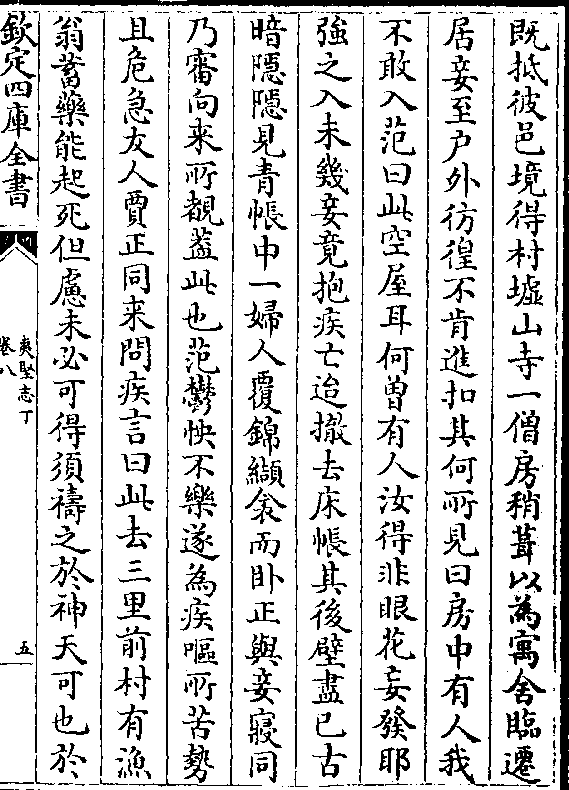 既抵彼邑境得村墟山寺一僧房稍葺以為寓舍臨遷
居妾至户外彷徨不肯進扣其何所見曰房中有人我
不敢入范曰此空屋耳何曽有人汝得非眼花妄發耶
強之入未幾妾竟抱疾亡迨撤去床帳其後壁畫已古
暗隠隠見青帳中一婦人覆錦纈衾而卧正與妾寢同
乃審向来所覩葢此也范鬱怏不樂遂為疾嘔所苦勢
且危急友人賈正同来問疾言曰此去三里前村有漁
翁蓄藥能起死但慮未必可得須禱之於神天可也於
欽定四庫全書
夷堅志丁
卷八
五